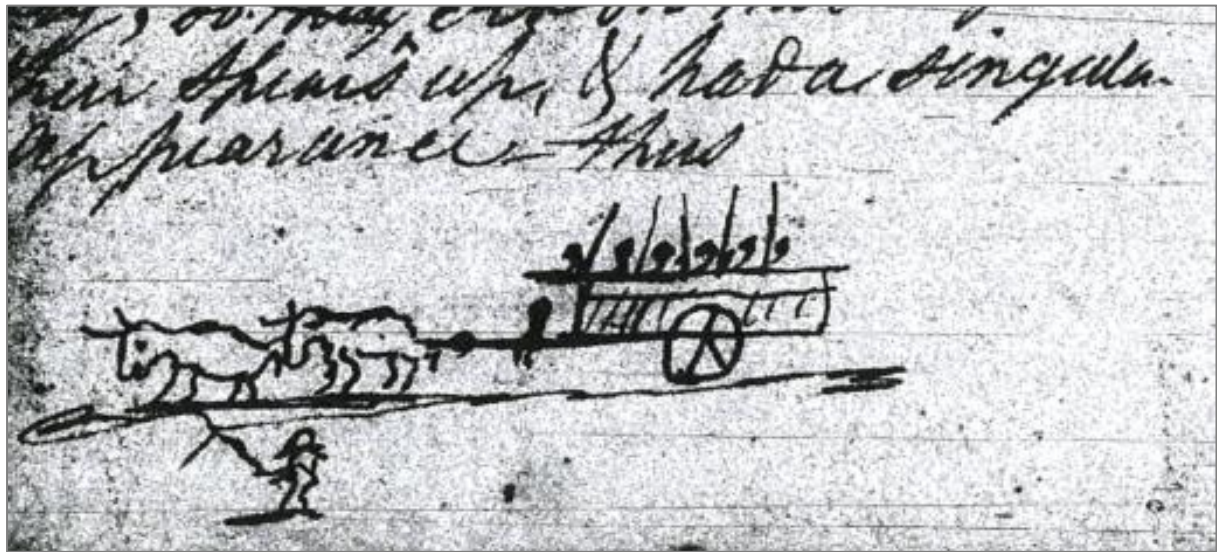 their spears up, & had a singular
appearance – thus